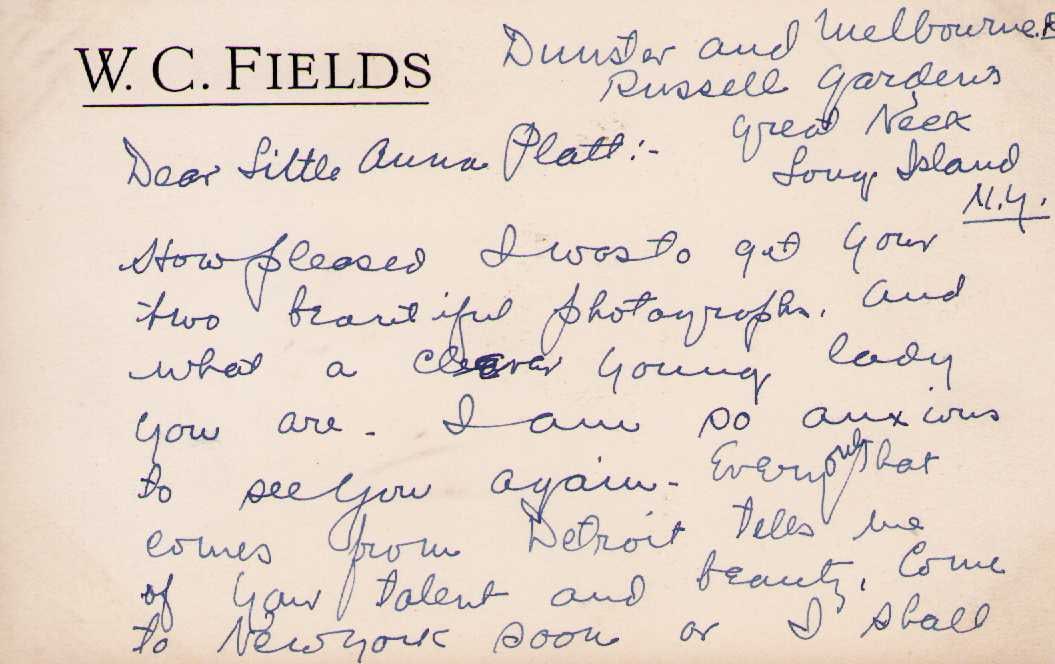 W. C. FIELDS
Dunster and Melbourne.R
Russell Gardens
Great Neck
Long Island
N.Y.
Dear Little Anna Platt:-
How pleased I was to get your
two beautiful photographs. And
what a clever young lady
you are. I am so anxious
to see you again. Every one that
comes from Detroit tells me
of your talent and beauty. Come
to New York soon or I shall